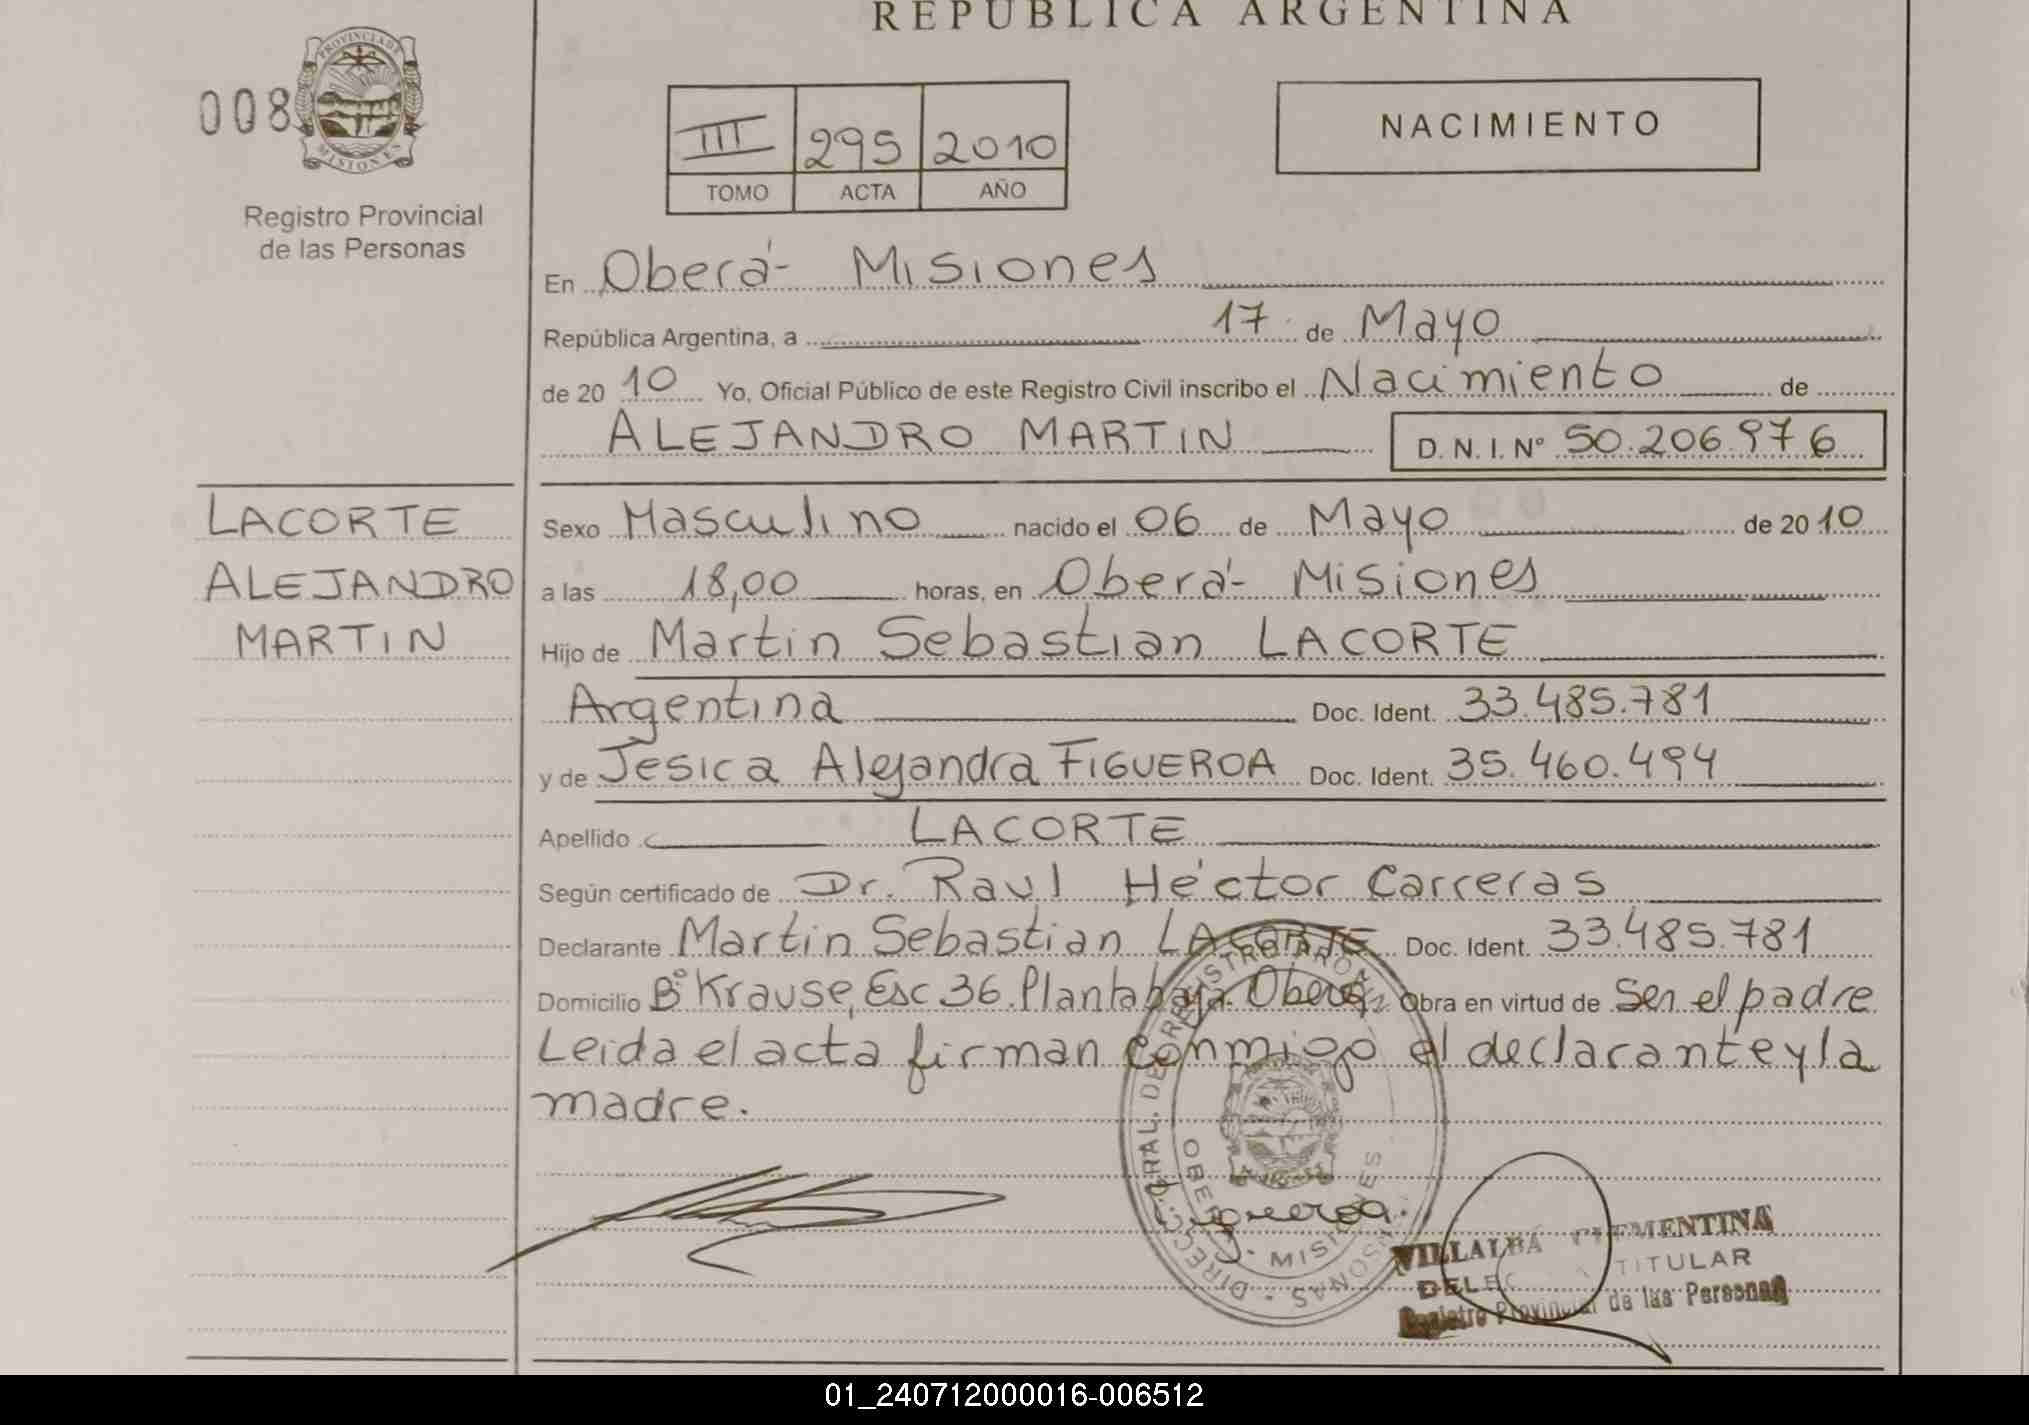 REPÚBLICA ARGENTINA
008
PROVINCIA DE MISIONES
Registro Provincial
de las Personas
III 295 2010
TOMO ACTA AÑO
NACIMIENTO
En Oberá - Misiones
República Argentina, a 17 de Mayo
de 2010 Yo, Oficial Público de este Registro Civil inscribo el Nacimiento de
ALEJANDRO MARTIN D. N. I. Nº 50.206.976
LACORTE
ALEJANDRO
MARTIN
Sexo Masculino nacido el 06 de Mayo de 2010
a las 18,00 horas, en Oberá - Misiones
Hijo de Martin Sebastian LACORTE
Argentina Doc. Ident. 33.485.781
y de Jesica Alejandra FIGUEROA Doc. Ident. 35.460.494
Apellido LACORTE
Según certificado de Dr. Raul Héctor Carreras
Declarante Martin Sebastian LACORTE Doc. Ident. 33.485.781
Domicilio Bº Krause, Esc 36. Planta baja. Oberá Obra en virtud de Ser el padre
Leida el acta firman conmigo el declarante y la
madre.
Figueroa.
VILLALBA CLEMENTINA
TITULAR
Registro Provincial de las Personas
01_240712000016-006512